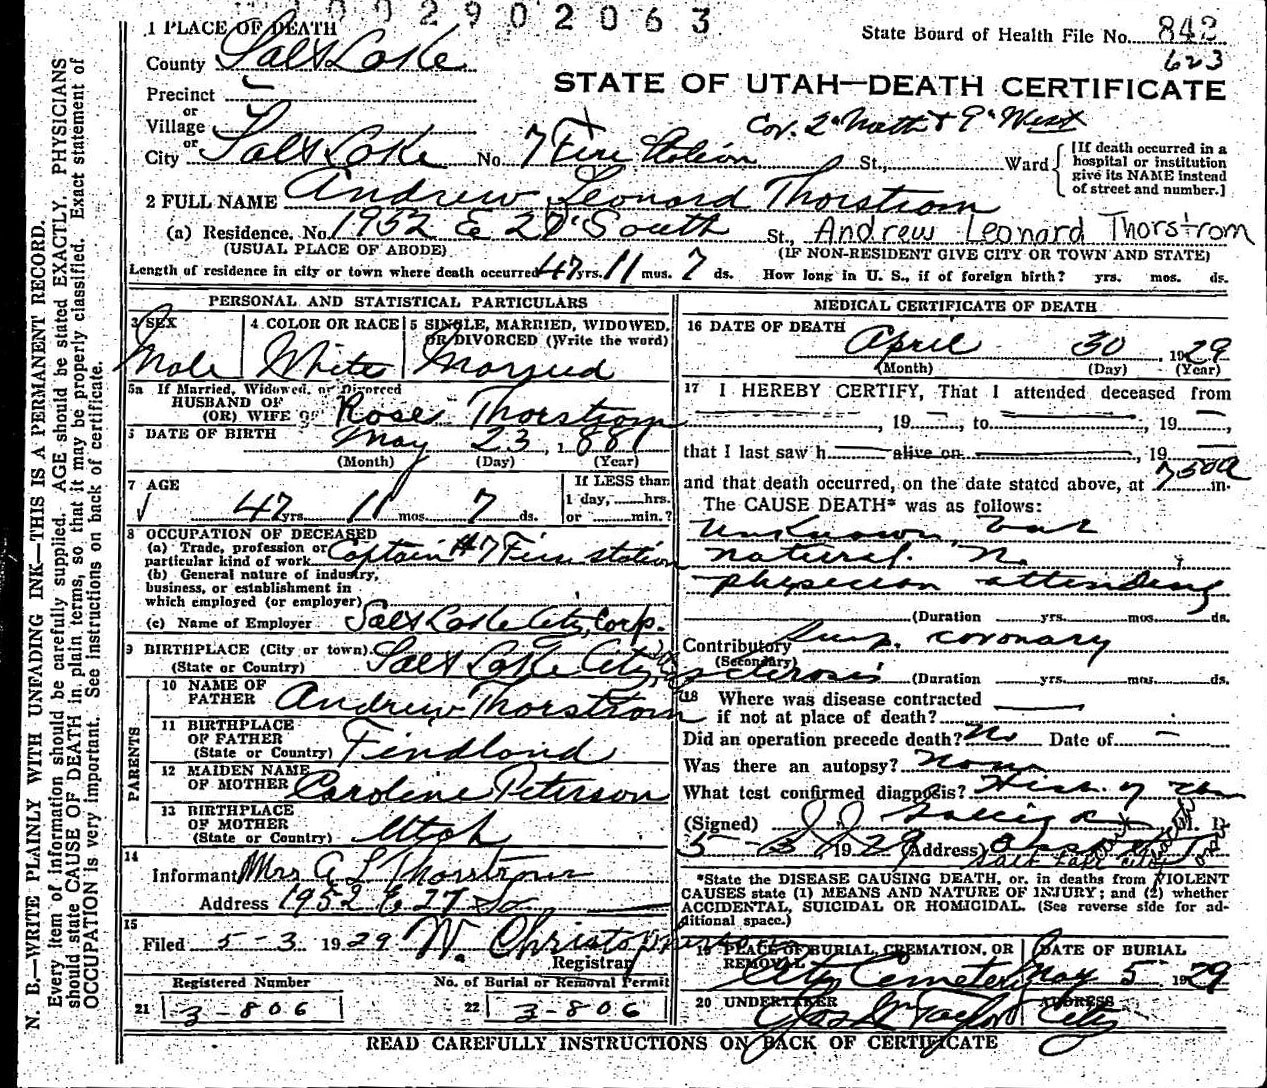 0 0 2 9 0 2 0 6 3
1 PLACE OF DEATH
State Board of Health File No. 842
623
County Salt Lake
STATE OF UTAH—DEATH CERTIFICATE
Precinct
or
Village
Cor. 2d North & 9th West
or
City Salt Lake No. 7 Fire Station St., Ward
[If death occurred in a hospital or institution give its NAME instead of street and number.]
2 FULL NAME Andrew Leonard Thorstrom
(a) Residence. No. 1952 E 27th South St., Andrew Leonard Thorstrom
(USUAL PLACE OF ABODE) (IF NON-RESIDENT GIVE CITY OR TOWN AND STATE)
Length of residence in city or town where death occurred 47 yrs. 11 mos. 7 ds. How long in U. S., if of foreign birth? yrs. mos. ds.
PERSONAL AND STATISTICAL PARTICULARS
3 SEX
Male
4 COLOR OR RACE
White
5 SINGLE, MARRIED, WIDOWED, OR DIVORCED (Write the word)
Married
5a If Married, Widowed, or Divorced
HUSBAND OF
(OR) WIFE OF Rose Thorstrom
6 DATE OF BIRTH May 23, 1881
(Month) (Day) (Year)
7 AGE
47 yrs. 11 mos. 7 ds.
If LESS than
1 day, hrs.
or min.?
8 OCCUPATION OF DECEASED
(a) Trade, profession or
particular kind of work Captain #7 Fire station
(b) General nature of industry,
business, or establishment in
which employed (or employer)
(c) Name of Employer Salt Lake City Corp.
9 BIRTHPLACE (City or town)
(State or Country) Salt Lake City
PARENTS
10 NAME OF
FATHER Andrew Thorstrom
11 BIRTHPLACE
OF FATHER
(State or Country) Findland
12 MAIDEN NAME
OF MOTHER Caroline Peterson
13 BIRTHPLACE
OF MOTHER
(State or Country) Utah
14
Informant Mrs A L Thorstrom
Address 1952 E 27 So
15
Filed 5-3 1929 W. Christopherson
Registrar
Registered Number
21 3-806
No. of Burial or Removal Permit
22 3-806
MEDICAL CERTIFICATE OF DEATH
16 DATE OF DEATH
April 30, 1929
(Month) (Day) (Year)
17 I HEREBY CERTIFY, That I attended deceased from
, 19 , to , 19 ,
that I last saw h alive on , 19
and that death occurred, on the date stated above, at 750a m.
The CAUSE DEATH* was as follows:
Unknown, but
natural. No
physician attending
(Duration yrs. mos. ds.
Contributory Sup. coronary
(Secondary)
sclerosis (Duration yrs. mos. ds.
18 Where was disease contracted
if not at place of death?
Did an operation precede death? No Date of
Was there an autopsy? None
What test confirmed diagnosis? Hist. of
(Signed)
5-3, 1929 (Address)
Salt Lake City
*State the DISEASE CAUSING DEATH, or, in deaths from VIOLENT
CAUSES state (1) MEANS AND NATURE OF INJURY; and (2) whether
ACCIDENTAL, SUICIDAL OR HOMICIDAL. (See reverse side for ad-
ditional space.)
19 PLACE OF BURIAL, CREMATION, OR
REMOVAL
City Cemetery
DATE OF BURIAL
May 5 1929
20 UNDERTAKER
Jos Wm Taylor
ADDRESS
City
READ CAREFULLY INSTRUCTIONS ON BACK OF CERTIFICATE
N. B.—WRITE PLAINLY WITH UNFADING INK—THIS IS A PERMANENT RECORD.
Every item of information should be carefully supplied. AGE should be stated EXACTLY. PHYSICIANS
should state CAUSE OF DEATH in plain terms, so that it may be properly classified. Exact statement of
OCCUPATION is very important. See instructions on back of certificate.